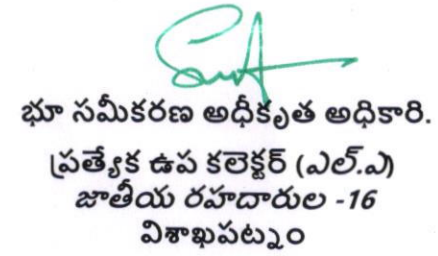 భూ సమీకరణ అధీకృత అధికారి.
ప్రత్యేక ఉప కలెక్టర్ (ఎల్.ఎ)
జాతీయ రహదారుల -16
విశాఖపట్నం